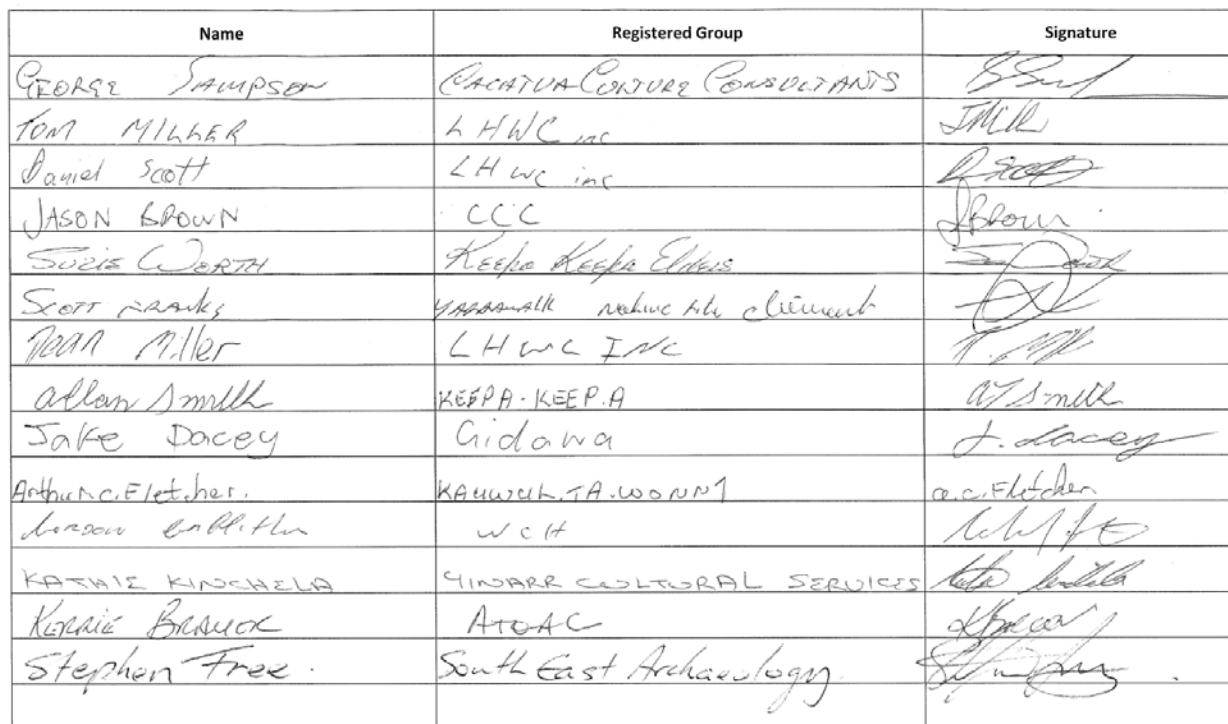 Name Registered Group Signature
GEORGE SAMPSON CACATUA CULTURE CONSULTANTS
TOM MILLER LHWC inc JMill
Daniel Scott LH WC inc D Scott
JASON BROWN CCC JBrown.
SUZIE WORTH Keepa Keepa Elders
SCOTT FRANKS YARRAWALK native title claimant
Dean Miller LHWC INC
allan Smith KEEPA-KEEP.A AJ Smith
Jake Dacey Gidawa J. dacey
Arthur.c.Fletcher. KAUWUL.TA.WONN1 a.c.Fletcher
WCH
KATHIE KINCHELA YINARR CULTURAL SERVICES
KERRIE BRAUER ATOAC KBrauer
Stephen Free. South East Archaeology.